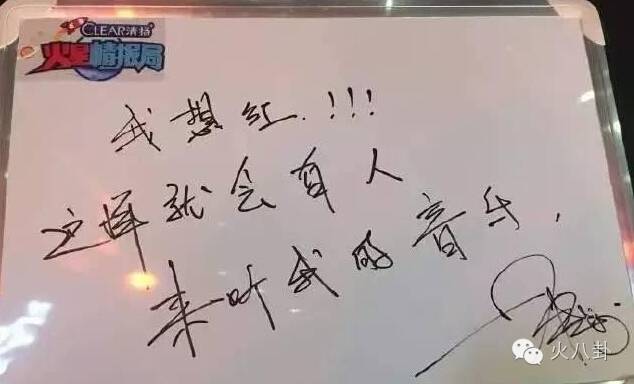 CLEAR清扬
火星情报局
我想红.!!!
这样就会有人
来听我的音乐,
火八卦